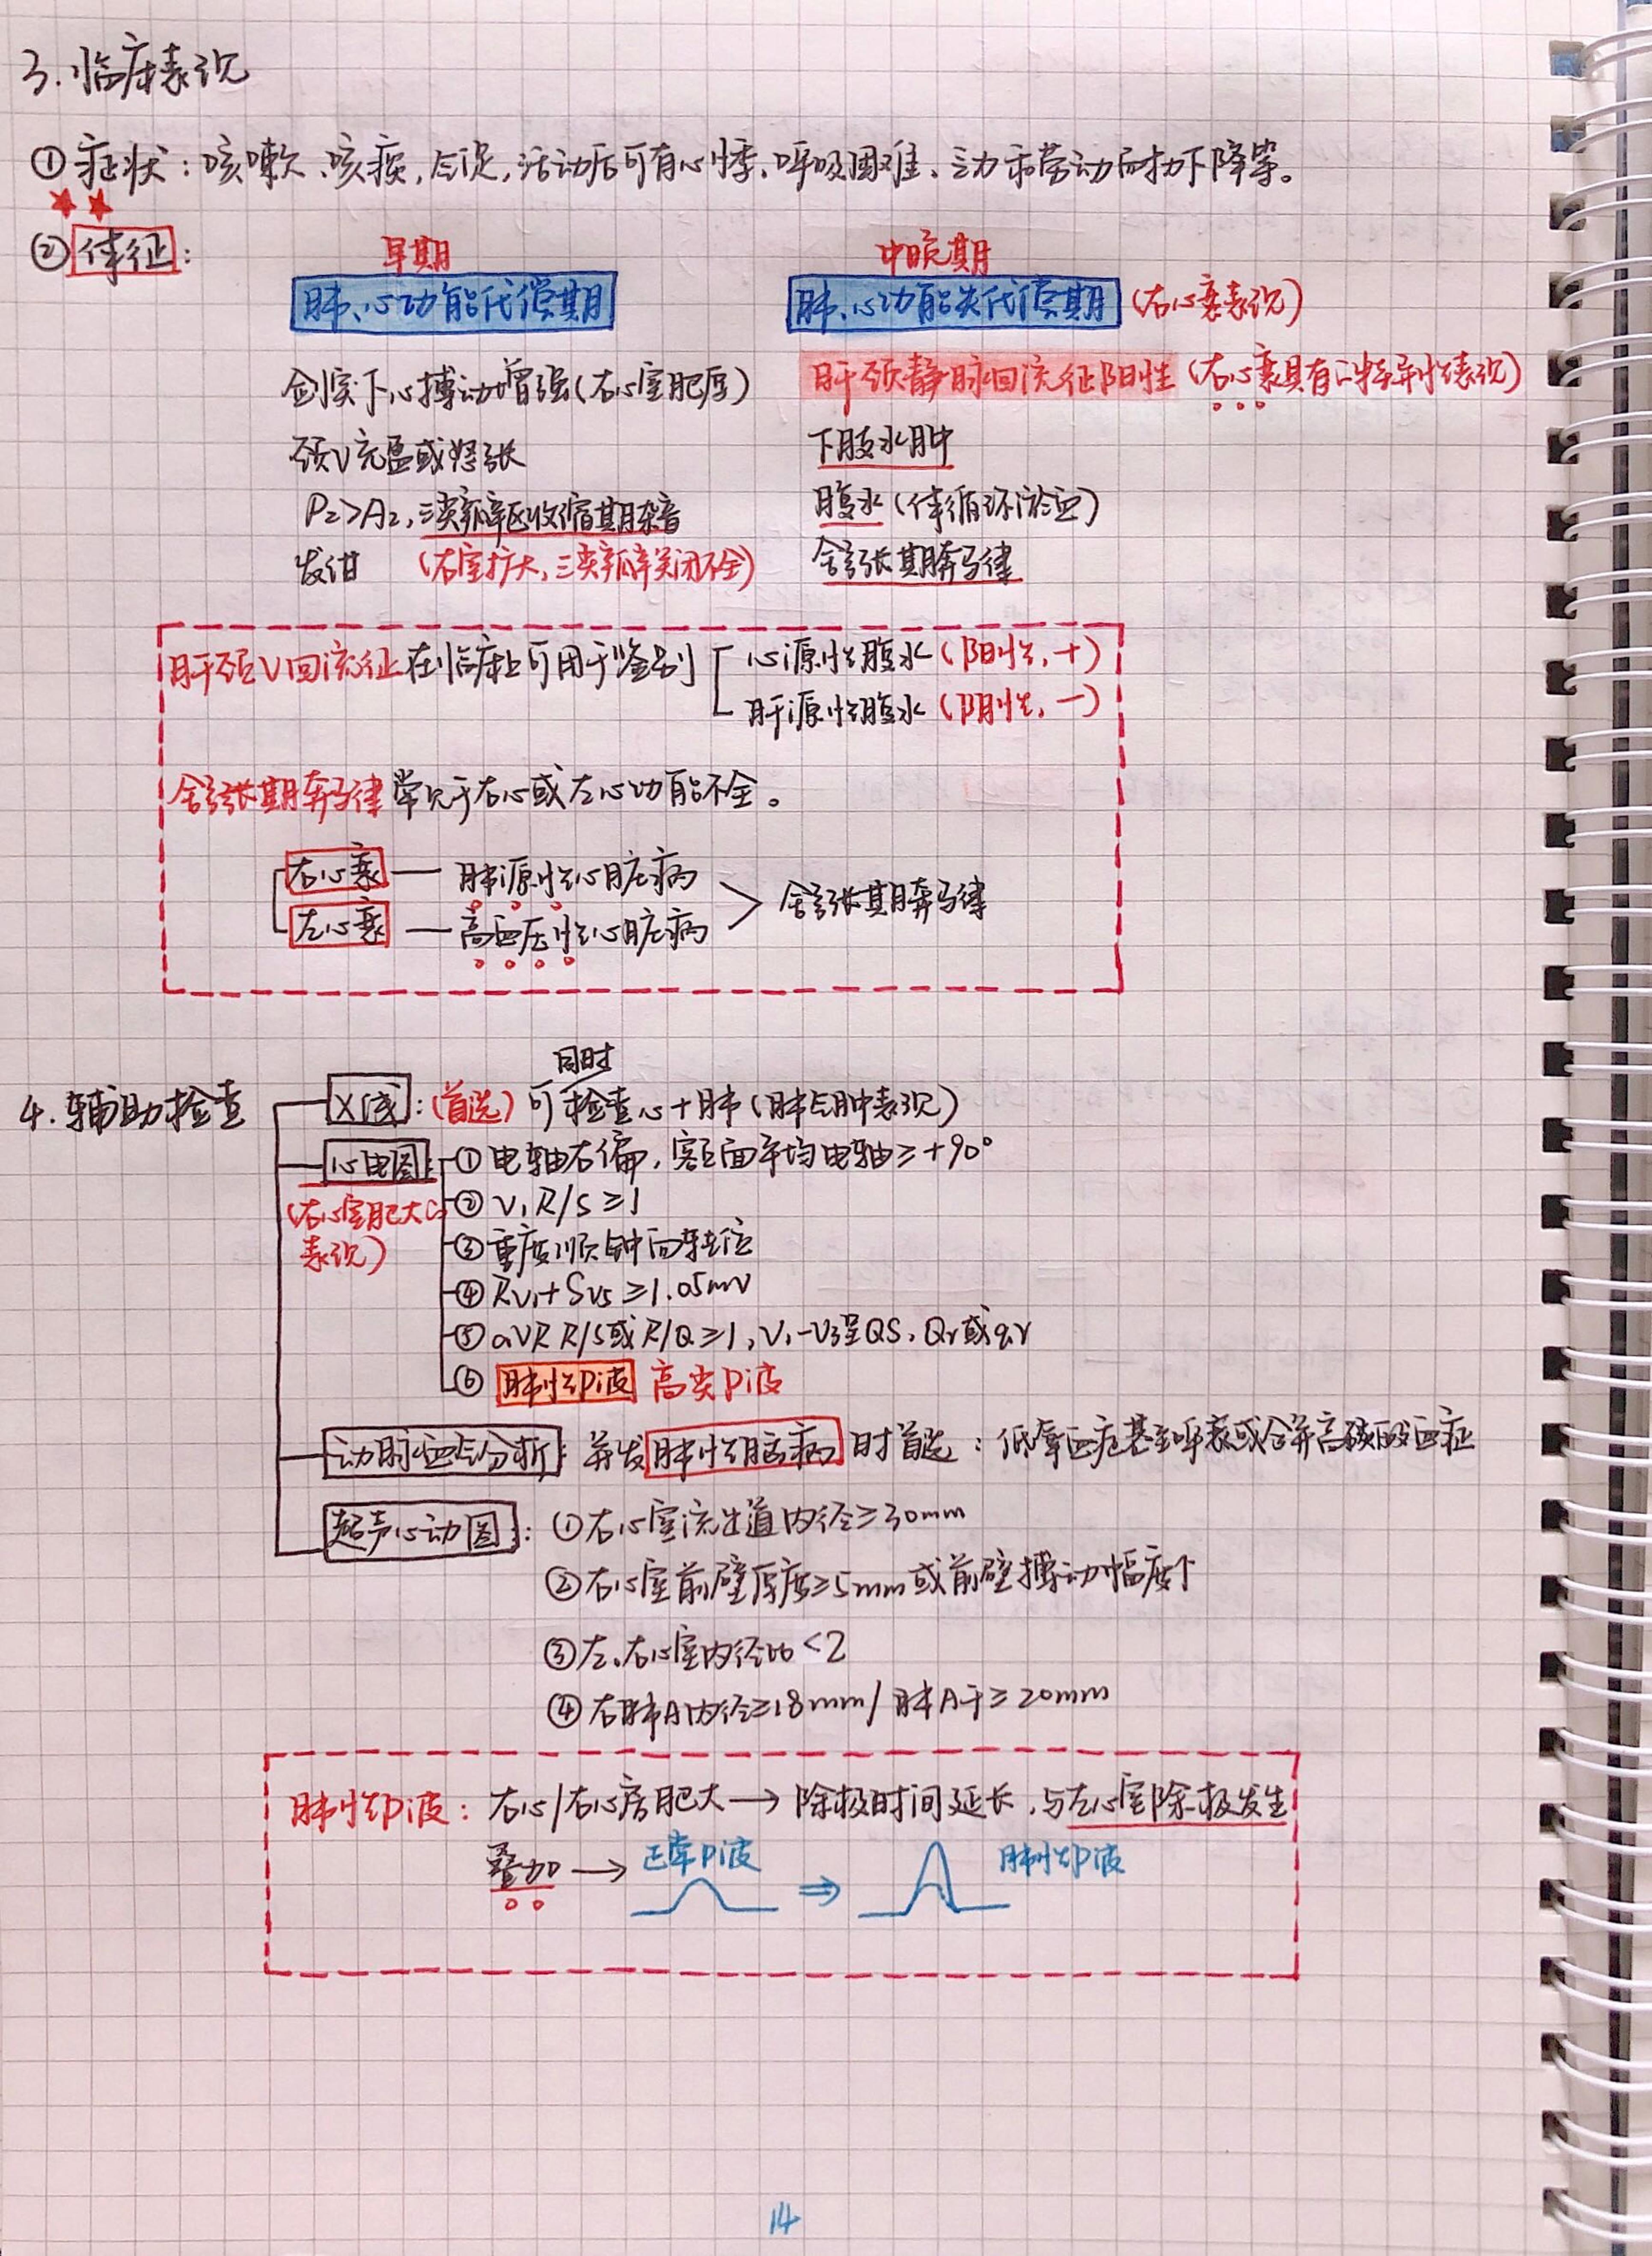 3.临床表现
①症状:咳嗽、咳痰,气促,活动后可有心悸、呼吸困难、乏力和劳动耐力下降等。
②体征:
早期
肺、心功能代偿期
剑突下心搏动增强(右心室肥厚)
颈V充盈或怒张
P₂>A₂,三尖瓣区收缩期杂音
发绀 (右室扩大,三尖瓣关闭不全)
中晚期
肺、心功能失代偿期(右心衰表现)
肝颈静脉回流征阳性(右心衰具有の特异性表现)
下肢水肿
腹水(体循环淤血)
舒张期奔马律
肝颈V回流征在临床上可用于鉴别
心源性腹水(阳性,+)
肝源性腹水(阴性,—)
舒张期奔马律常见于右心或左心功能不全。
右心衰—肺源性心脏病
左心衰—高血压性心脏病
>舒张期奔马律
4.辅助检查
同时
X线:(首选)可检查心+肺(肺气肿表现)
心电图:
(右心室肥大の
表现)
①电轴右偏,额面平均电轴≥+90°
②V₁R/S≥1
③重度顺钟向转位
④Rv₁+Sv₅≥1.05mV
⑤aVR R/S或R/Q≥1,V₁-V₃呈QS、Qr或qr
⑥肺性P波 高尖P波
动脉血气分析:并发肺性脑病时首选:低氧血症甚至呼衰或合并高碳酸血症
超声心动图:①右心室流出道内径≥30mm
②右心室前壁厚度≥5mm或前壁搏动幅度↑
③左、右心室内径比<2
④右肺A内径≥18mm/肺A干≥20mm
肺性P波:右心/右心房肥大→除极时间延长,与左心室除极发生
叠加→正常P波 ⇒ 肺性P波
14